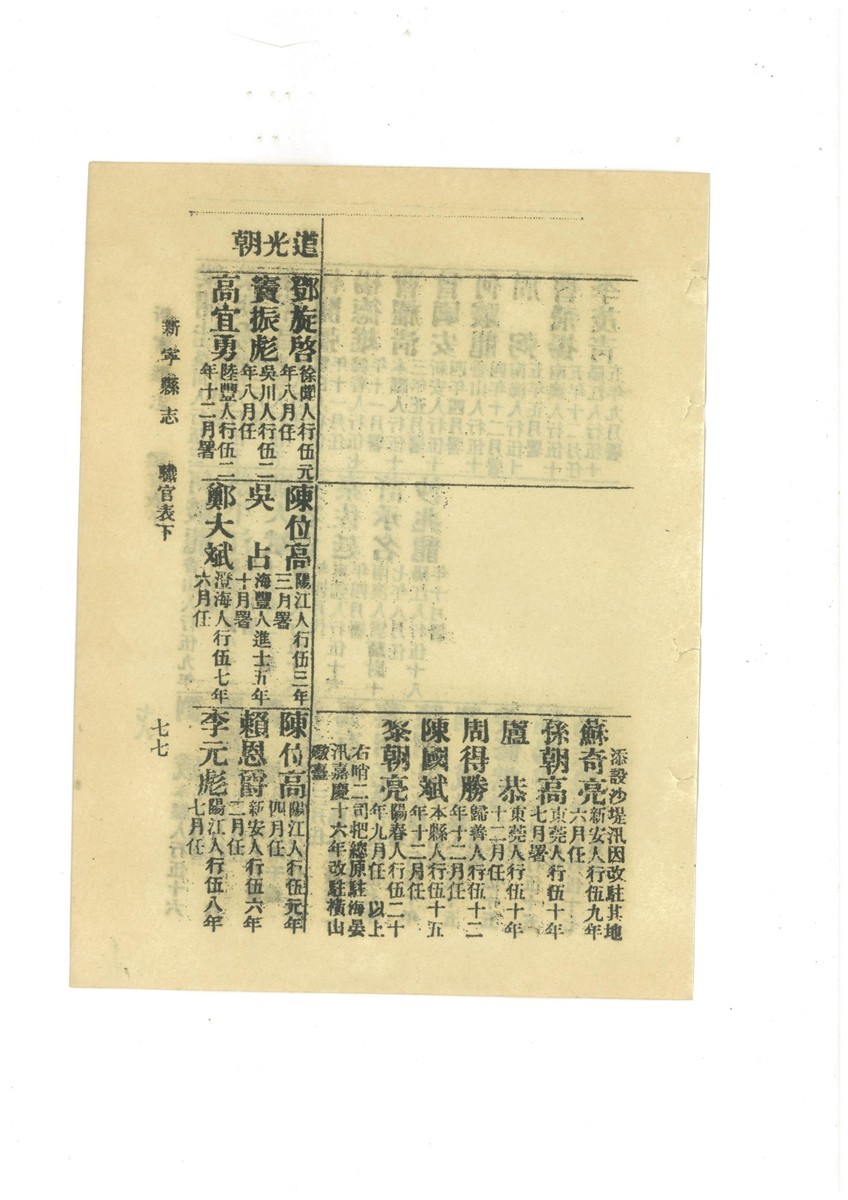 添設沙堤汛因改駐其地
蘇奇亮新安人行伍九年六月任
孫朝高東莞人行伍十年七月署
盧　恭東莞人行伍十年十二月任
周得勝歸善人行伍十二年十二月任
陳國斌本縣人行伍十五年十二月任
黎朝亮陽春人行伍二十年九月任　以上
右哨二司把總原駐海晏
汛嘉慶十六年改駐橫山
墩臺
道光朝
鄧旋啓徐聞人行伍元年八月任
竇振彪吳川人行伍二年八月任
高宜勇陸豐人行伍二年十二月署
陳位高陽江人行伍三年三月署
吳　占海豐人進士五年十月署
鄭大斌澄海人行伍七年六月任
陳位高陽江人行伍元年四月任
賴恩爵新安人行伍六年二月任
李元彪陽江人行伍八年七月任
新寧縣志　職官表下
七七